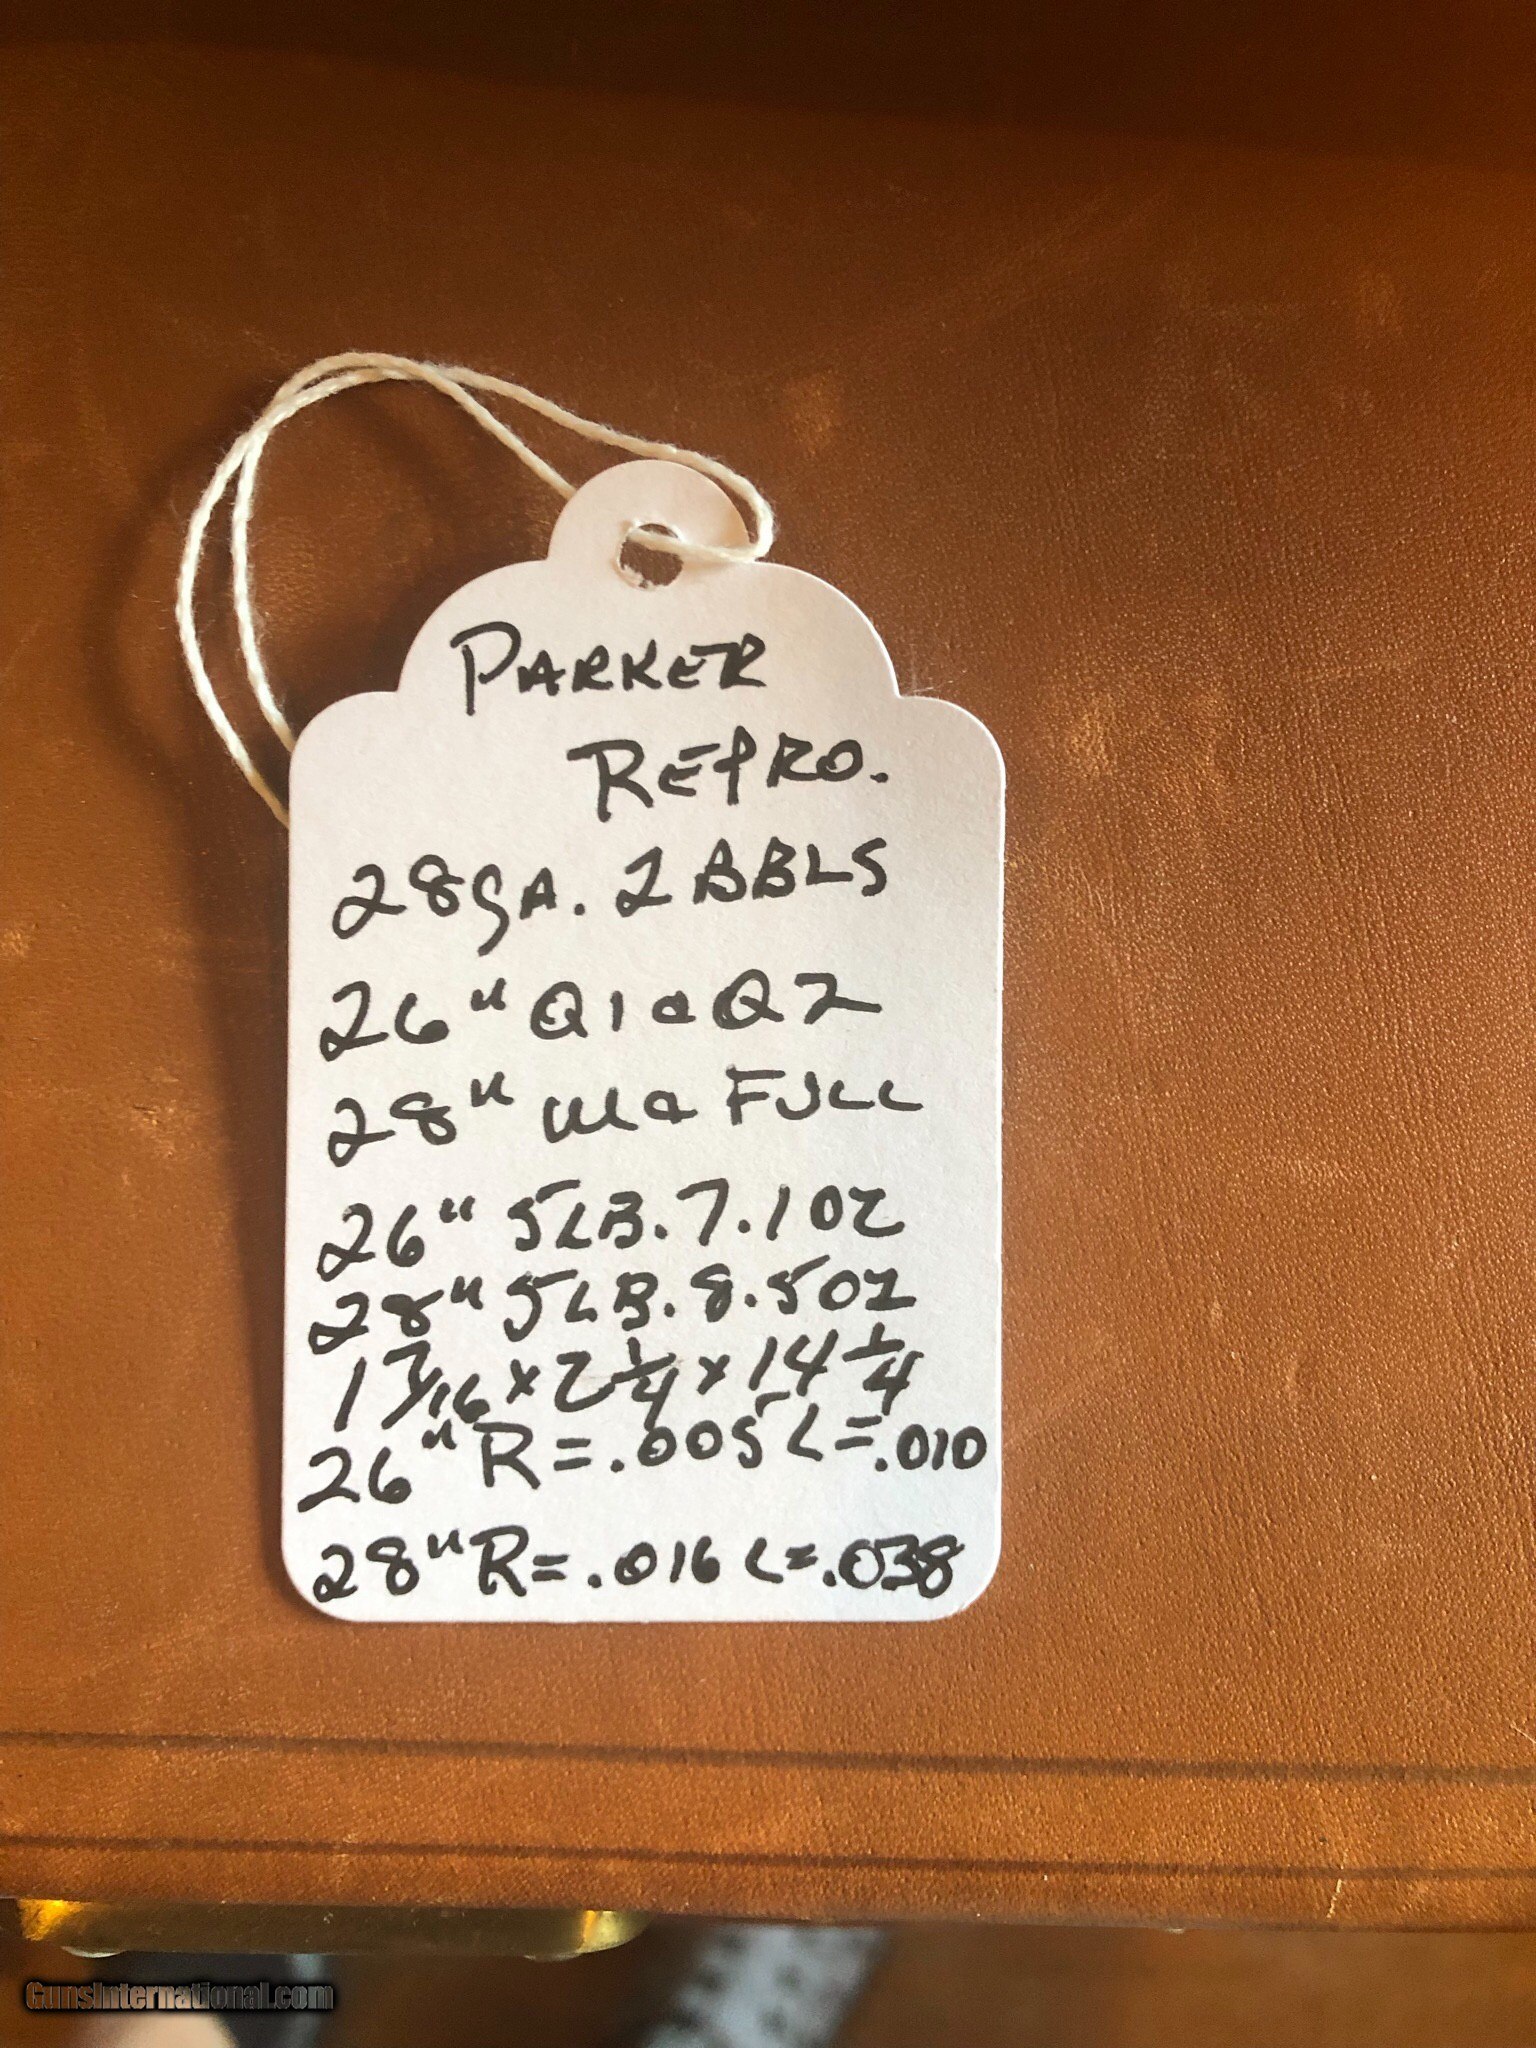 PARKER
REPRO.
28GA. 2 BBLS
26" Q1 & Q2
28" M & FULL
26" 5LB. 7.1 OZ
28" 5LB. 8.5 OZ
1 7/16 x 2 1/4 x 14 1/4
26" R=.005 L=.010
28" R=.016 L=.038
GunsInternational.com